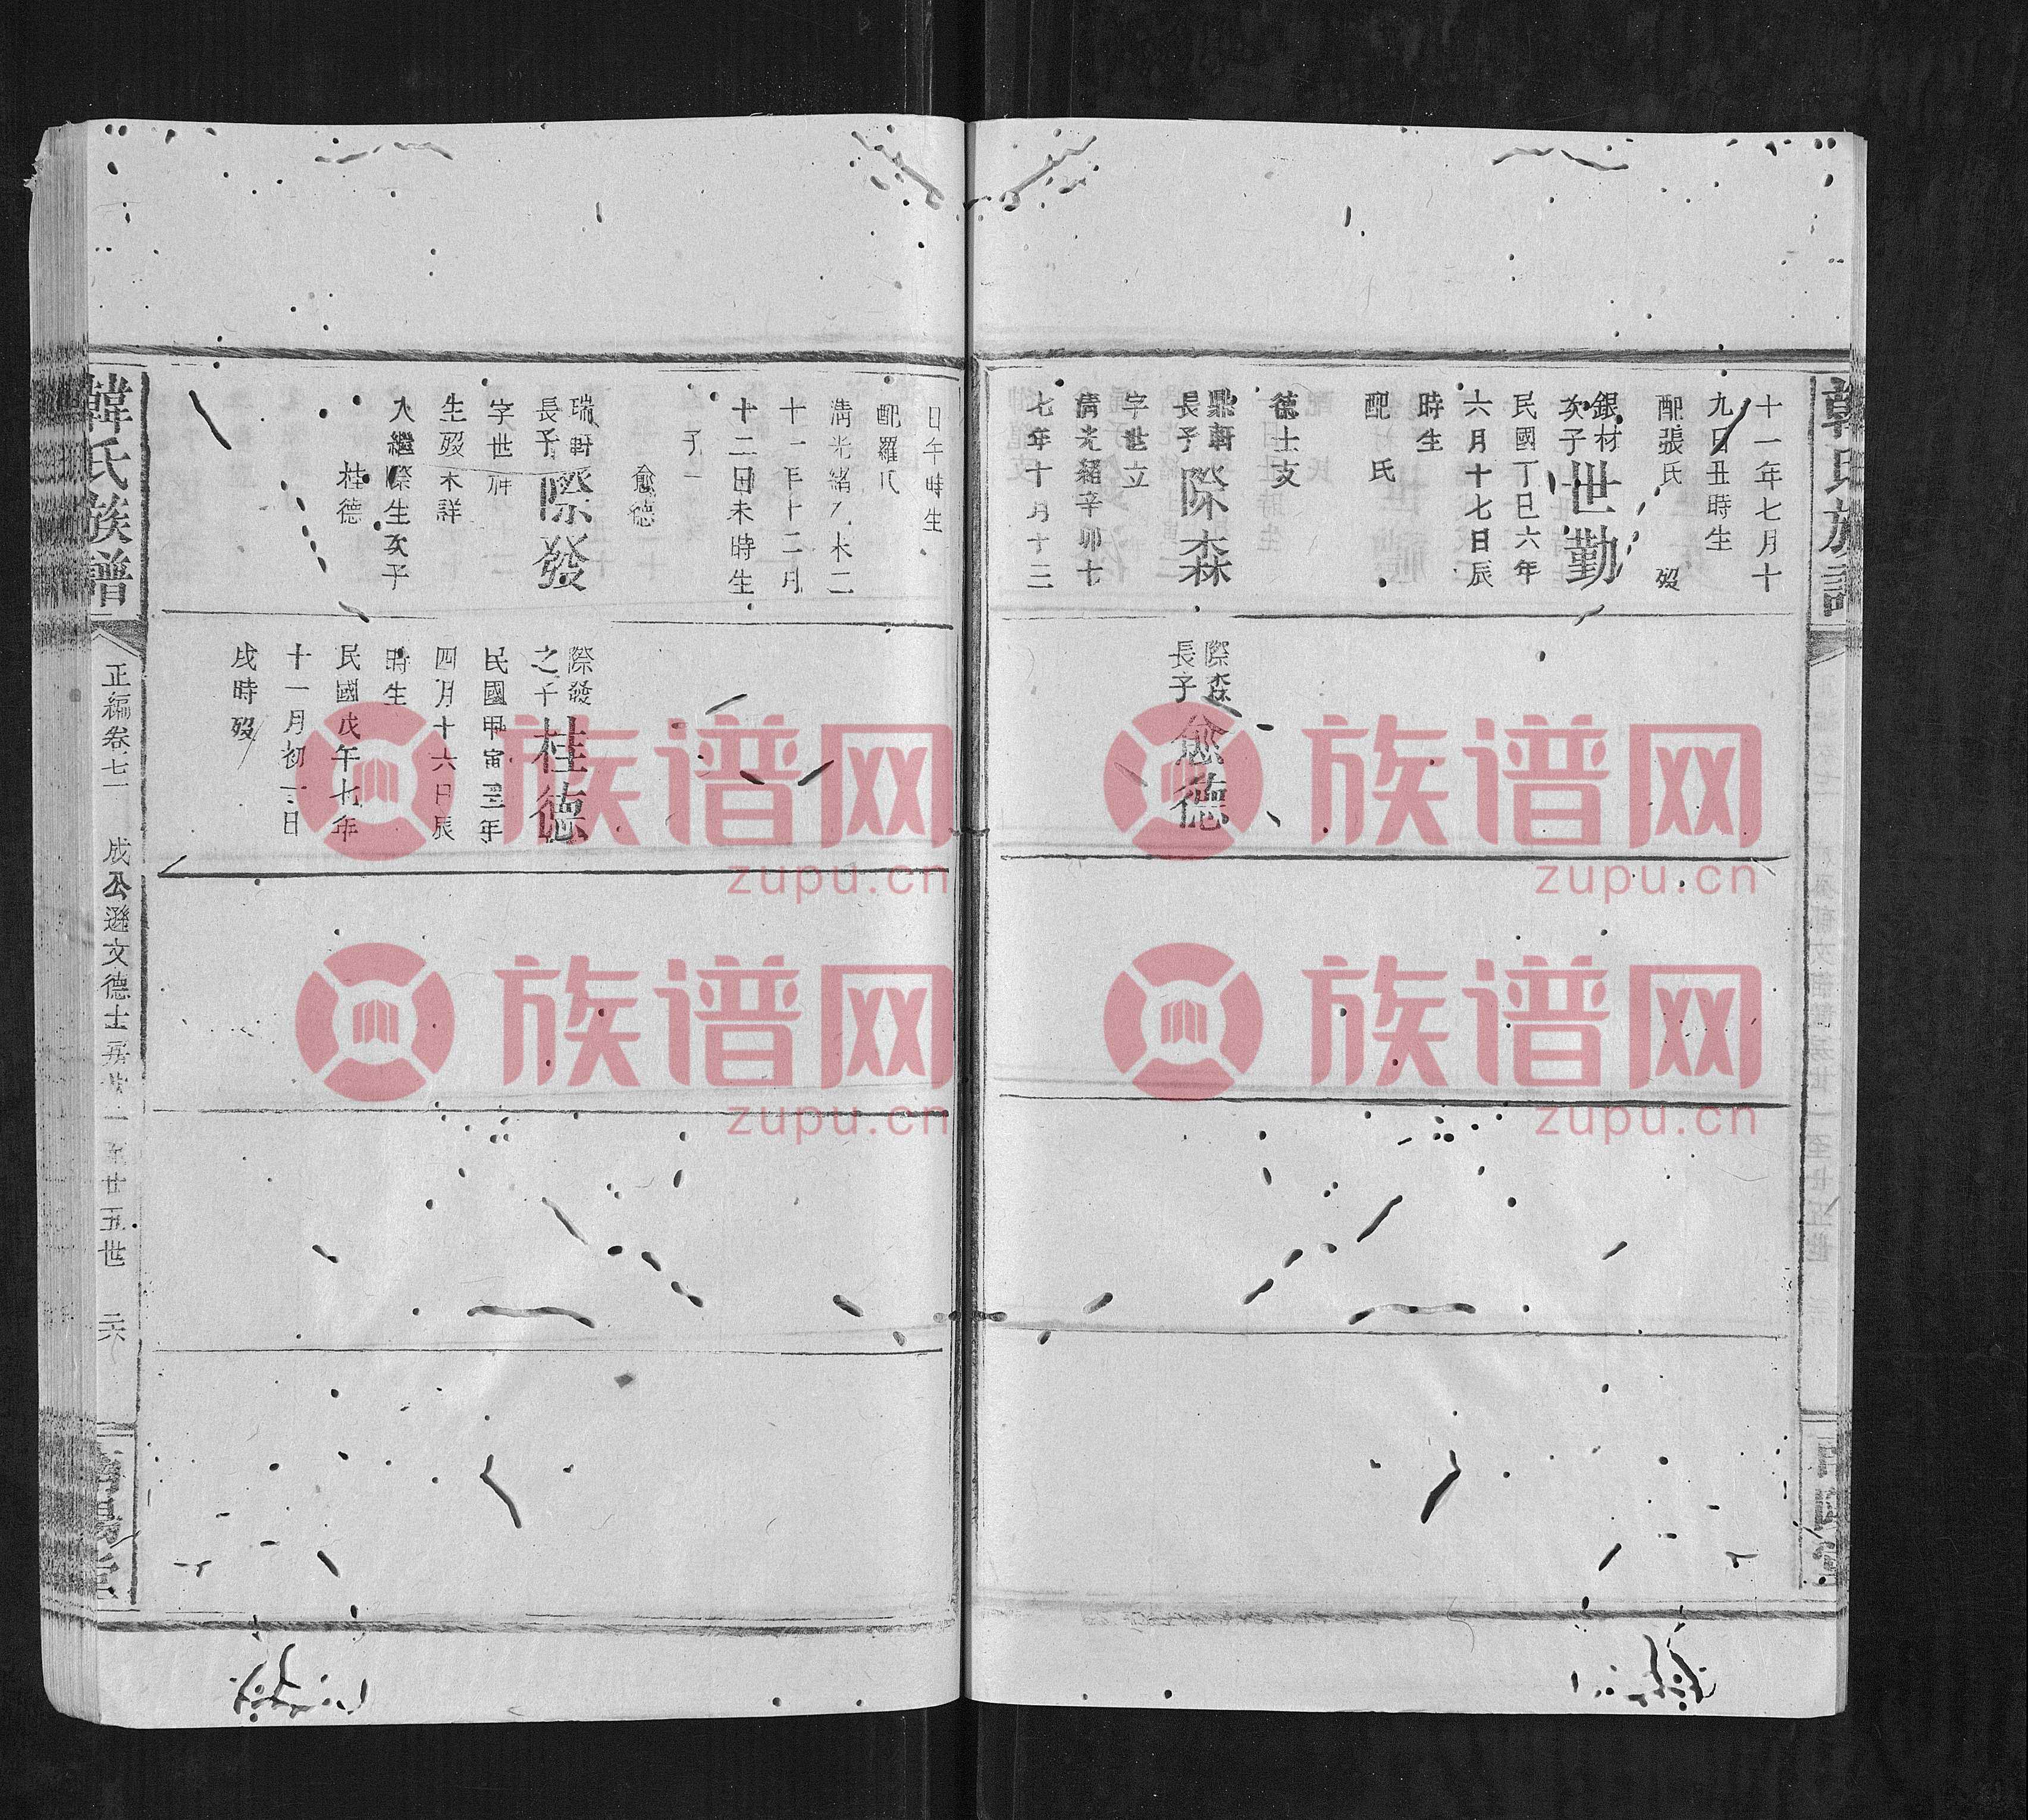 韓氏族譜
十一年七月十
九日丑時生
配張氏 歿
銀材
次子 世勤
民國丁巳六年
六月十七日辰
時生
配 氏
德士支
鼎軒
長子 際森
字世立
清光緒辛卯十
七年十月十三
際森
長子 愈德
日午時生
配羅氏
十二日未時生
子一
愈德
瑞軒
長子 際發
字世
生歿未詳
入繼際生次子
桂德
際發
之子 桂德
民國甲寅三年
四月十六日辰
時生
民國戊午七年
十一月初一日
戌時歿
韓氏族譜
正編卷七 成公遜文德士房廿一至廿五世 二六
族谱网
zupu.cn
族谱网
zupu.cn
族谱网
zupu.cn
族谱网
zupu.cn